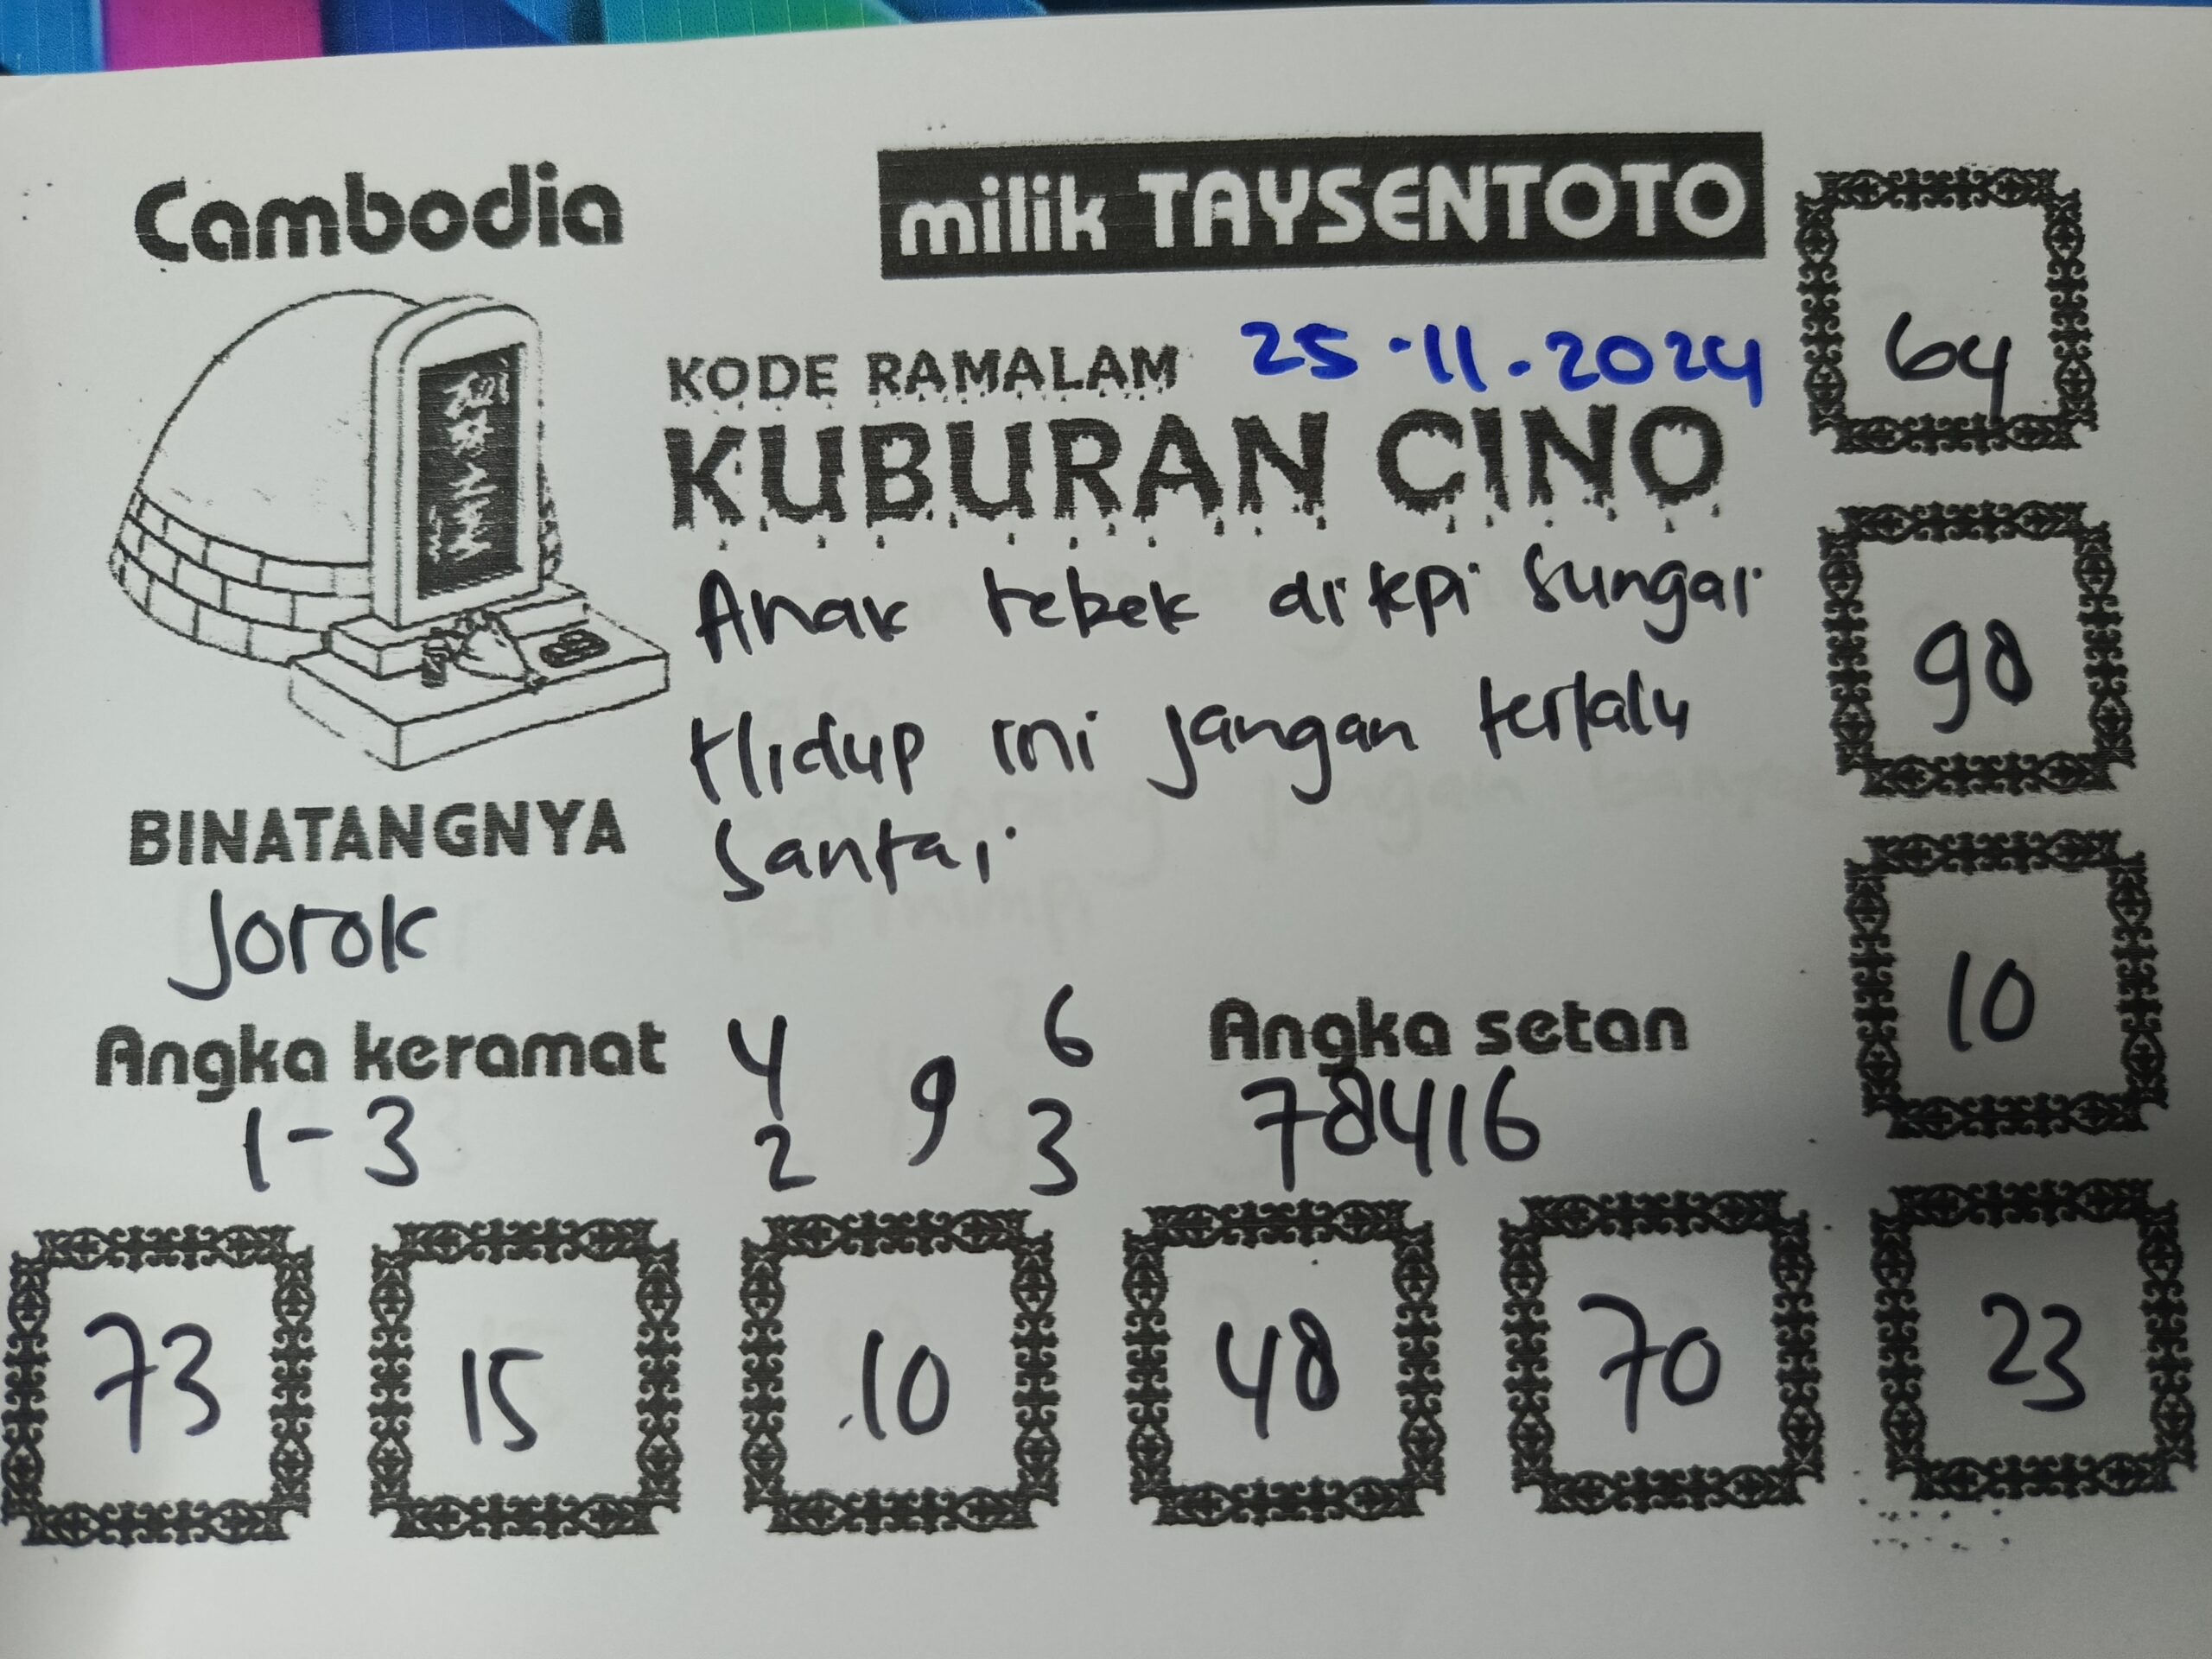 Cambodia
milik TAYSENTOTO
KODE RAMALAM 25.11.2024
KUBURAN CINO
Anak bebek ditepi sungai
Hidup ini jangan terlalu
santai
BINATANGNYA
Jorok
Angka keramat
1-3
4 6
9
2 3
Angka setan
78416
64
98
10
73 15 10 48 70 23